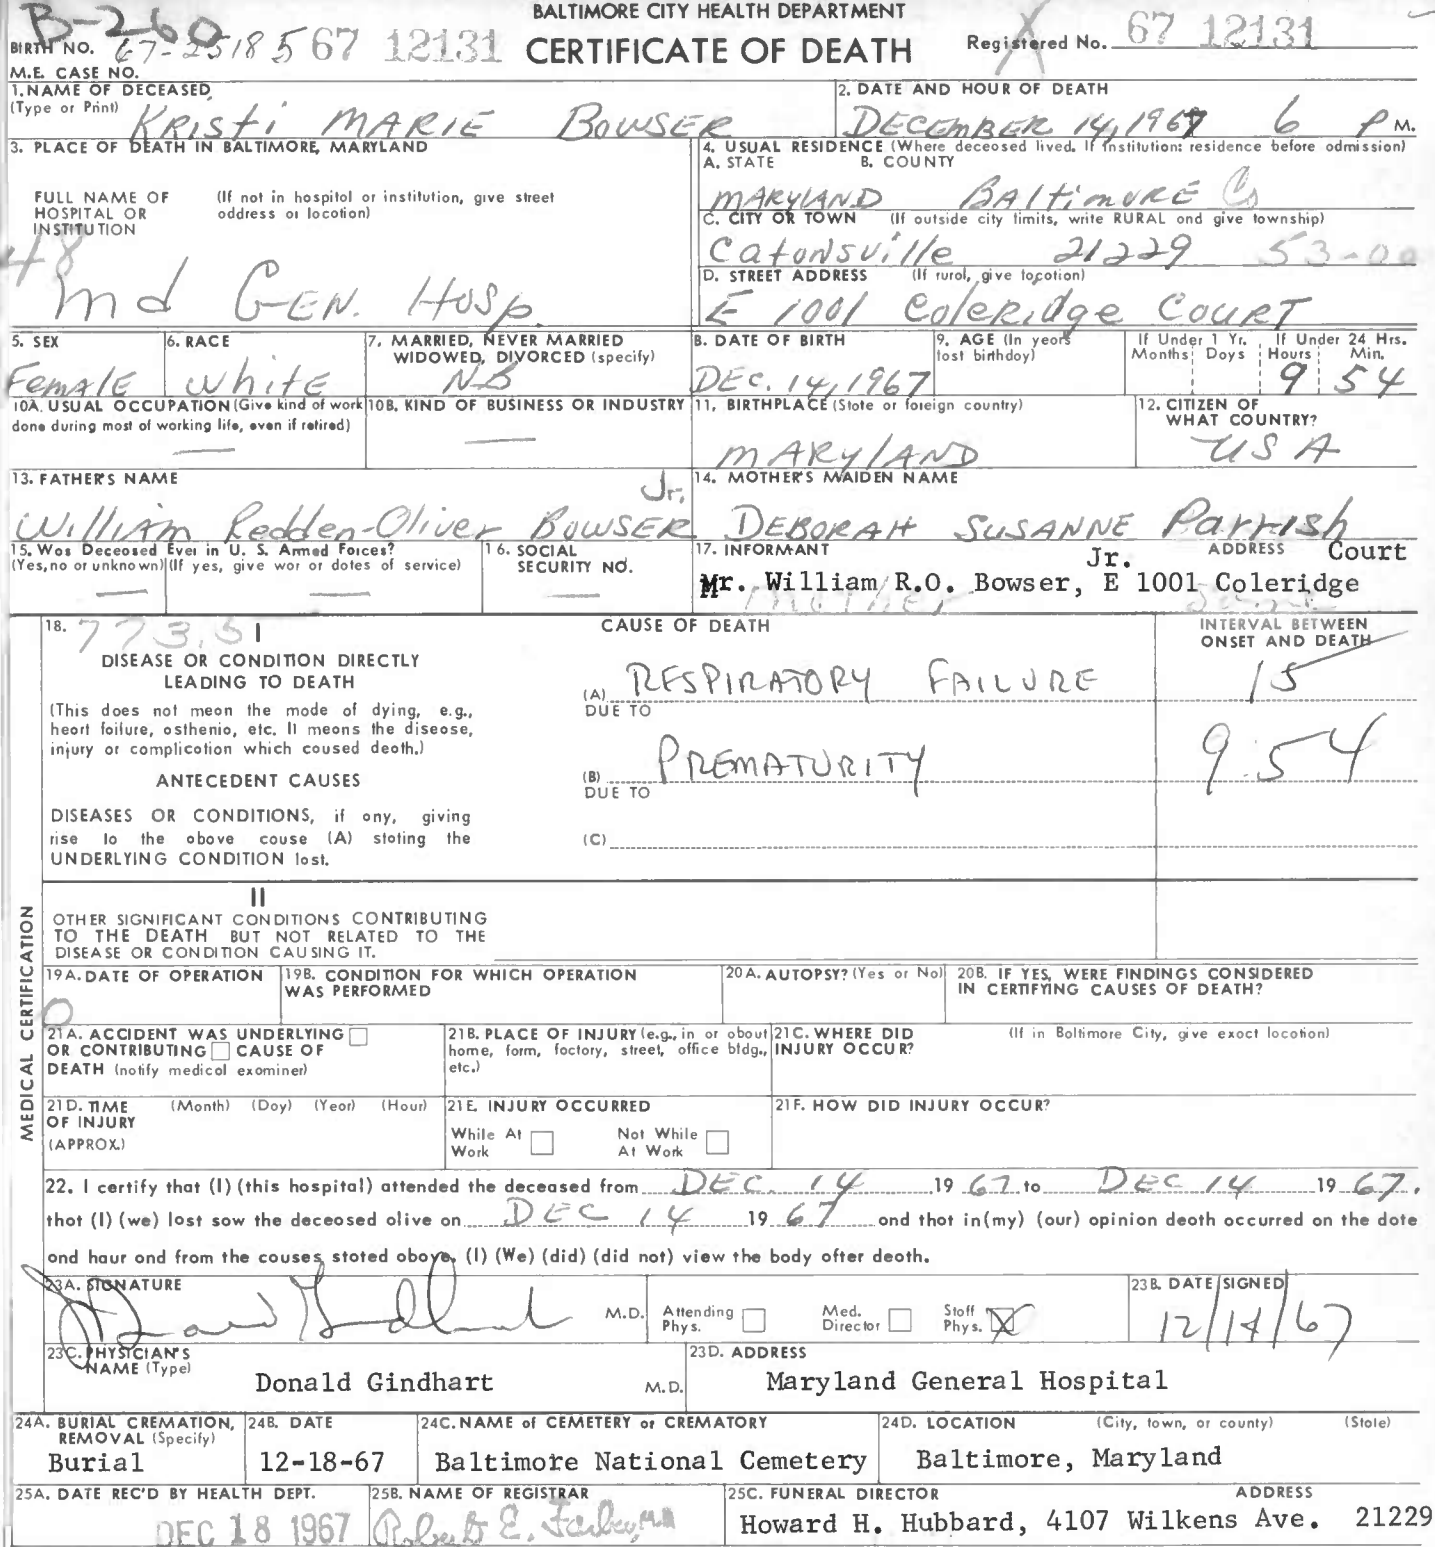 B-260
BALTIMORE CITY HEALTH DEPARTMENT
BIRTH NO. 67-25185 67 12131 CERTIFICATE OF DEATH Registered No. 67 12131
M.E. CASE NO.
1. NAME OF DECEASED (Type or Print) KRISti MARIE BOWSER
2. DATE AND HOUR OF DEATH DECEMBER 14, 1967 6 P M.
3. PLACE OF DEATH IN BALTIMORE, MARYLAND
FULL NAME OF HOSPITAL OR INSTITUTION (If not in hospital or institution, give street address or location)
48
Md GEN. Hosp.
4. USUAL RESIDENCE (Where deceased lived. If institution: residence before admission)
A. STATE B. COUNTY
MARYLAND BAltimORE Co
C. CITY OR TOWN (If outside city limits, write RURAL and give township)
Catonsville 21229 53-00
D. STREET ADDRESS (If rural, give location)
E 1001 Coleridge COURT
5. SEX FEmAlE
6. RACE White
7. MARRIED, NEVER MARRIED WIDOWED, DIVORCED (specify) NB
8. DATE OF BIRTH DEC. 14, 1967
9. AGE (In years last birthday)
If Under 1 Yr. Months Days
If Under 24 Hrs. Hours Min. 9 54
10A. USUAL OCCUPATION (Give kind of work done during most of working life, even if retired) —
10B. KIND OF BUSINESS OR INDUSTRY —
11. BIRTHPLACE (State or foreign country) MARYLAND
12. CITIZEN OF WHAT COUNTRY? USA
13. FATHER'S NAME William Redden-Oliver BOWSER Jr.
14. MOTHER'S MAIDEN NAME DEBORAH SUSANNE Parrish
15. Was Deceased Ever in U. S. Armed Forces? (Yes, no or unknown) (If yes, give war or dates of service) — —
16. SOCIAL SECURITY NO. —
17. INFORMANT ADDRESS
Mr. William R.O. Bowser, Jr. E 1001 Coleridge Court
mother Same
18. 773.5 I CAUSE OF DEATH INTERVAL BETWEEN ONSET AND DEATH
DISEASE OR CONDITION DIRECTLY LEADING TO DEATH
(This does not mean the mode of dying, e.g., heart failure, asthenia, etc. It means the disease, injury or complication which caused death.)
(A) RESPIRATORY FAILURE 15
DUE TO
ANTECEDENT CAUSES
(B) PREMATURITY 9.54
DUE TO
DISEASES OR CONDITIONS, if any, giving rise to the above cause (A) stating the UNDERLYING CONDITION last.
(C)
II
OTHER SIGNIFICANT CONDITIONS CONTRIBUTING TO THE DEATH BUT NOT RELATED TO THE DISEASE OR CONDITION CAUSING IT.
MEDICAL CERTIFICATION
19A. DATE OF OPERATION 0
19B. CONDITION FOR WHICH OPERATION WAS PERFORMED
20A. AUTOPSY? (Yes or No)
20B. IF YES, WERE FINDINGS CONSIDERED IN CERTIFYING CAUSES OF DEATH?
21A. ACCIDENT WAS UNDERLYING OR CONTRIBUTING CAUSE OF DEATH (notify medical examiner)
21B. PLACE OF INJURY (e.g., in or about home, farm, factory, street, office bldg., etc.)
21C. WHERE DID INJURY OCCUR? (If in Baltimore City, give exact location)
21D. TIME OF INJURY (APPROX.) (Month) (Day) (Year) (Hour)
21E. INJURY OCCURRED While At Work Not While At Work
21F. HOW DID INJURY OCCUR?
22. I certify that (I) (this hospital) attended the deceased from DEC. 14 19 67 to DEC 14 19 67,
that (I) (we) last saw the deceased alive on DEC 14 19 67 and that in (my) (our) opinion death occurred on the date
and hour and from the causes stated above, (I) (We) (did) (did not) view the body after death.
23A. SIGNATURE Donald Gindhart M.D. Attending Phys. Med. Director Staff Phys. X
23B. DATE SIGNED 12/14/67
23C. PHYSICIAN'S NAME (Type) Donald Gindhart M.D.
23D. ADDRESS Maryland General Hospital
24A. BURIAL CREMATION, REMOVAL (Specify) Burial
24B. DATE 12-18-67
24C. NAME of CEMETERY or CREMATORY Baltimore National Cemetery
24D. LOCATION (City, town, or county) (State) Baltimore, Maryland
25A. DATE REC'D BY HEALTH DEPT. DEC 18 1967
25B. NAME OF REGISTRAR Robert E. Farber, M.D.
25C. FUNERAL DIRECTOR ADDRESS
Howard H. Hubbard, 4107 Wilkens Ave. 21229